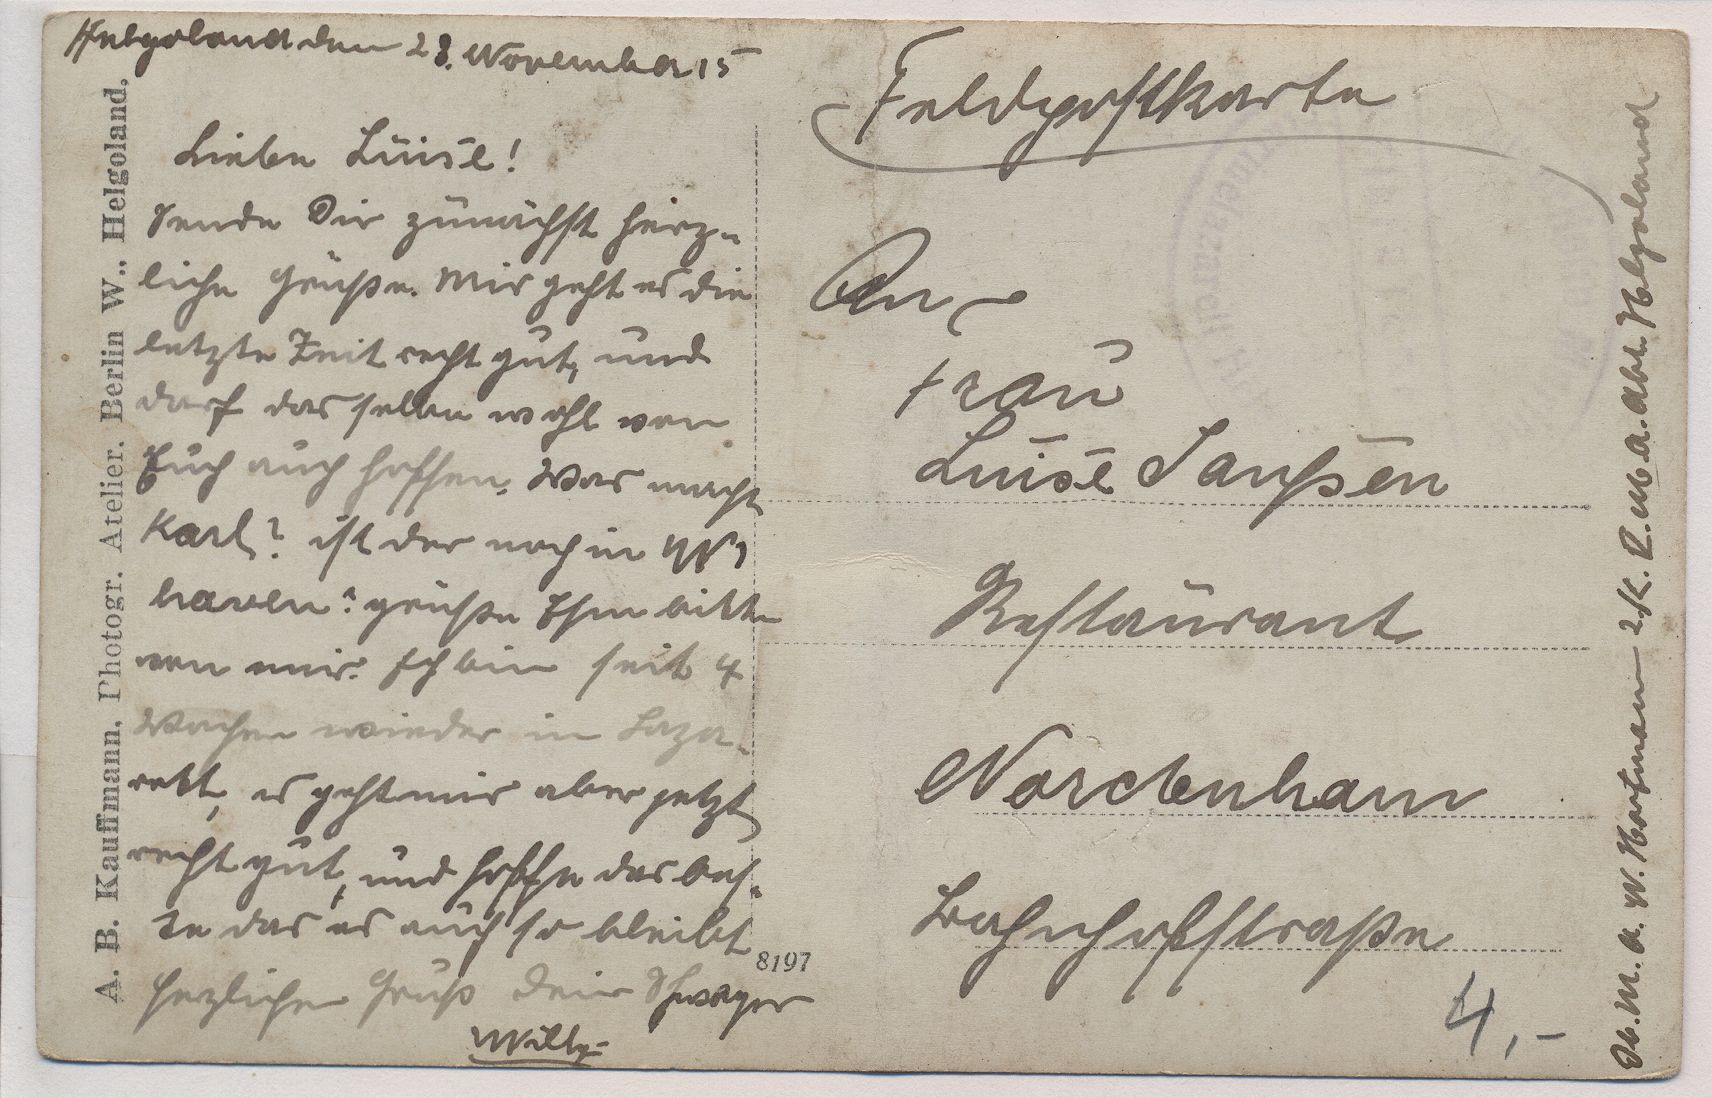 Helgoland den 28. November 15
Lieben Luise!
Sende Dir zunächst herz-
liche Grüße. Mir geht es die
letzte Zeit recht gut, und
darf das selbe wohl von
Euch auch hoffen. Was macht
Karl? ist der noch in W
haven? grüße Ihm bitte
von mir. Ich bin seit 4
Wochen wieder in Laza-
rett, es geht mir aber jetzt
recht gut, und hoffe das bes-
te das es auch so bleibt
herzlichen Gruß dein Schwager
Willy
A. B. Kauffmann, Photogr. Atelier. Berlin W., Helgoland.
8197
Feldpostkarte
An
Frau
Luise Janßen
Restaurant
Nordenham
Bahnhofstraße
4,-
Ob. M. a. W. Hartmann 2. K. R. M. a. Abt. Helgoland